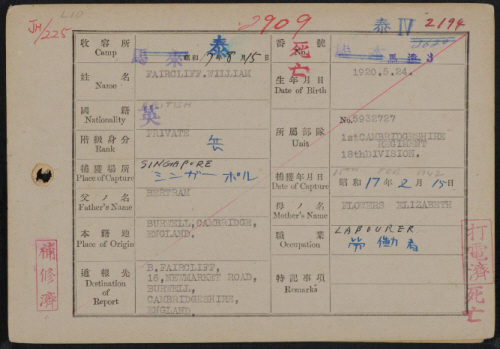 JH/225
2909
泰 IV
2194
收容所
Camp
泰
昭和17年8月15日
番號
No.
馬來 3
死亡
姓名
Name
FAIRCLIFF.WILLIAM
生年月日
Date of Birth
1920.5.24.
國籍
Nationality
英
階級身分
Rank
PRIVATE
兵
所屬部隊
Unit
No.5932727
1stCAMBRIDGESHIRE
REGIMENT
18thDIVISION.
捕獲場所
Place of Capture
SINGAPORE
シンガポール
捕獲年月日
Date of Capture
昭和 17年 2月 15日
父ノ名
Father's Name
BERTRAM
母ノ名
Mother's Name
FLOWERS ELIZABETH
本籍地
Place of Origin
BURWELL,CAMBRIDGE,
ENGLAND.
職業
Occupation
LABOURER
労働者
通報先
Destination of Report
B.FAIRCLIFF,
16,NEWMARKET ROAD,
BURWELL,
CAMBRIDGESHIRE,
ENGLAND.
特記事項
Remarks
補修濟
打電濟
死亡